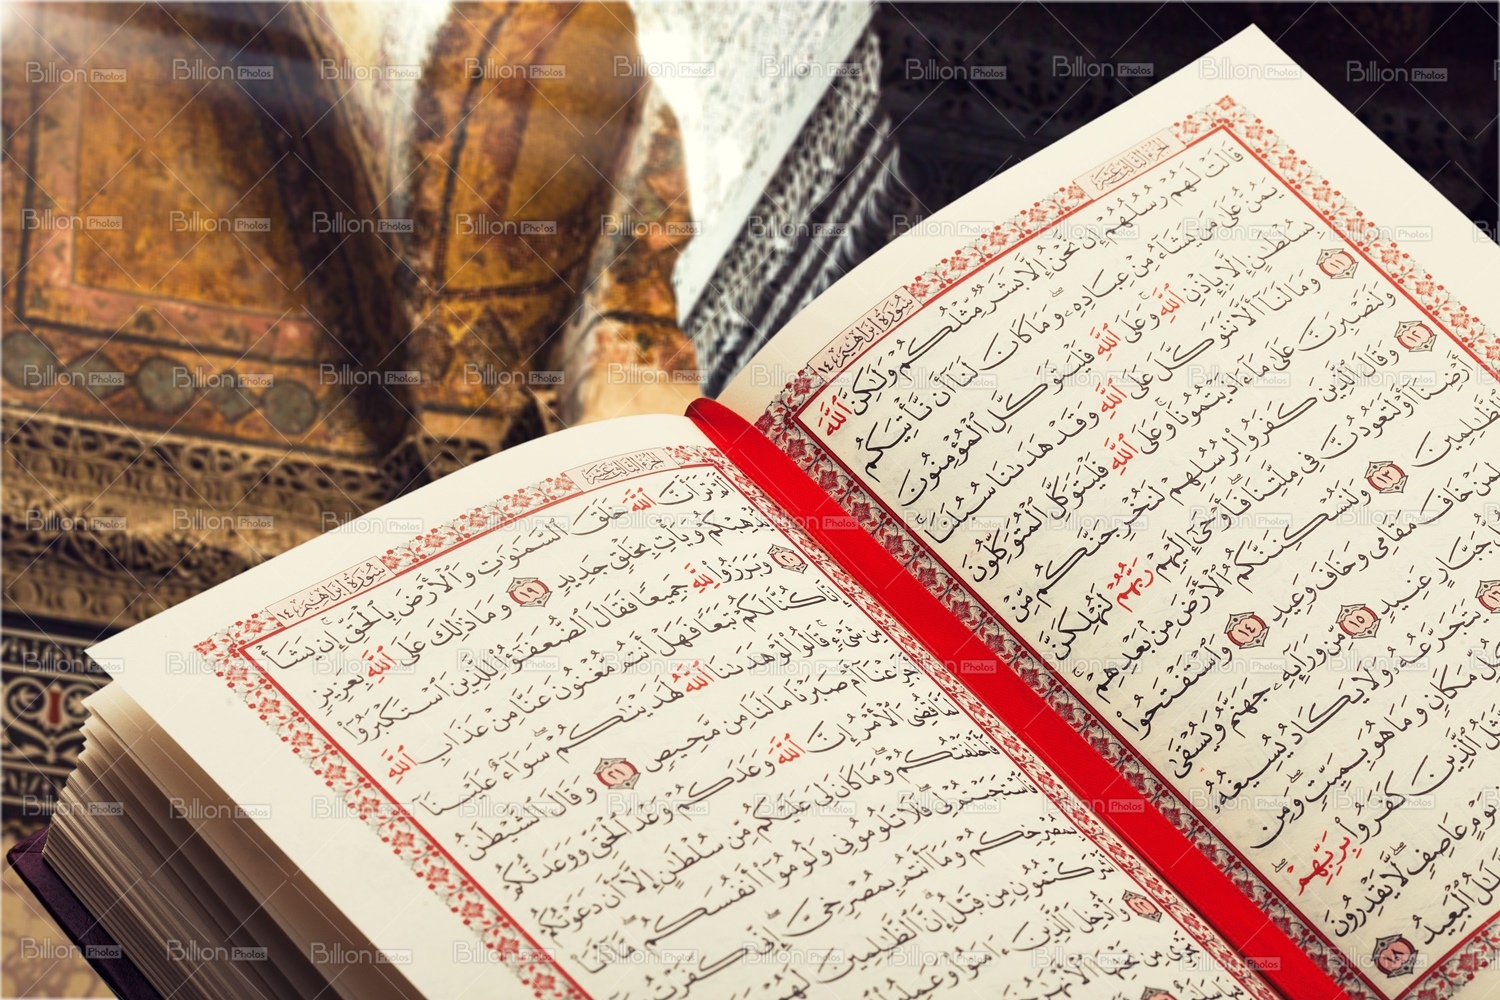 الجزء الثالث عشر
سورة إبراهيم ١٤
قَالَتْ لَهُمْ رُسُلُهُمْ إِن نَّحْنُ إِلَّا بَشَرٌ مِّثْلُكُمْ وَلَٰكِنَّ اللَّهَ
يَمُنُّ عَلَىٰ مَن يَشَاءُ مِنْ عِبَادِهِ وَمَا كَانَ لَنَا أَن نَّأْتِيَكُم
بِسُلْطَٰنٍ إِلَّا بِإِذْنِ اللَّهِ وَعَلَى اللَّهِ فَلْيَتَوَكَّلِ الْمُؤْمِنُونَ
١١ وَمَا لَنَا أَلَّا نَتَوَكَّلَ عَلَى اللَّهِ وَقَدْ هَدَىٰنَا سُبُلَنَا
وَلَنَصْبِرَنَّ عَلَىٰ مَا ءَاذَيْتُمُونَا وَعَلَى اللَّهِ فَلْيَتَوَكَّلِ الْمُتَوَكِّلُونَ
١٢ وَقَالَ الَّذِينَ كَفَرُوا لِرُسُلِهِمْ لَنُخْرِجَنَّكُم مِّنْ
أَرْضِنَا أَوْ لَتَعُودُنَّ فِي مِلَّتِنَا فَأَوْحَىٰ إِلَيْهِمْ رَبُّهُمْ لَنُهْلِكَنَّ
الظَّٰلِمِينَ ١٣ وَلَنُسْكِنَنَّكُمُ الْأَرْضَ مِن بَعْدِهِمْ
لِمَنْ خَافَ مَقَامِي وَخَافَ وَعِيدِ ١٤ وَاسْتَفْتَحُوا
جَبَّارٍ عَنِيدٍ ١٥ مِّن وَرَائِهِ جَهَنَّمُ وَيُسْقَىٰ
١٦ يَتَجَرَّعُهُ وَلَا يَكَادُ يُسِيغُهُ
مَكَانٍ وَمَا هُوَ بِمَيِّتٍ وَمِن
الَّذِينَ كَفَرُوا بِرَبِّهِمْ
يَوْمٍ عَاصِفٍ لَّا يَقْدِرُونَ
الْبَعِيدُ ١٨
الجزء الثالث عشر
سورة إبراهيم ١٤
أَلَمْ تَرَ أَنَّ اللَّهَ خَلَقَ السَّمَٰوَٰتِ وَالْأَرْضَ بِالْحَقِّ إِن يَشَأْ
يُذْهِبْكُمْ وَيَأْتِ بِخَلْقٍ جَدِيدٍ ١٩ وَمَا ذَٰلِكَ عَلَى اللَّهِ بِعَزِيزٍ
٢٠ وَبَرَزُوا لِلَّهِ جَمِيعًا فَقَالَ الضُّعَفَٰؤُا لِلَّذِينَ اسْتَكْبَرُوا
إِنَّا كُنَّا لَكُمْ تَبَعًا فَهَلْ أَنتُم مُّغْنُونَ عَنَّا مِنْ عَذَابِ اللَّهِ
مِن شَيْءٍ قَالُوا لَوْ هَدَىٰنَا اللَّهُ لَهَدَيْنَٰكُمْ سَوَاءٌ عَلَيْنَا
أَجَزِعْنَا أَمْ صَبَرْنَا مَا لَنَا مِن مَّحِيصٍ ٢١ وَقَالَ الشَّيْطَٰنُ
لَمَّا قُضِيَ الْأَمْرُ إِنَّ اللَّهَ وَعَدَكُمْ وَعْدَ الْحَقِّ وَوَعَدتُّكُمْ
فَأَخْلَفْتُكُمْ وَمَا كَانَ لِيَ عَلَيْكُم مِّن سُلْطَٰنٍ إِلَّا أَن دَعَوْتُكُمْ
فَاسْتَجَبْتُمْ لِي فَلَا تَلُومُونِي وَلُومُوا أَنفُسَكُم مَّا أَنَا
بِمُصْرِخِكُمْ وَمَا أَنتُم بِمُصْرِخِيَّ إِنِّي كَفَرْتُ
أَشْرَكْتُمُونِ مِن قَبْلُ إِنَّ الظَّٰلِمِينَ لَهُمْ
٢٢ وَأُدْخِلَ الَّذِينَ ءَامَنُوا وَعَمِلُوا
تَجْرِي مِن تَحْتِهَا الْأَنْهَٰرُ
Billion Photos